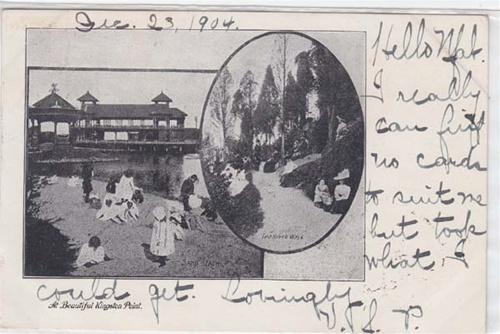 Dec. 23, 1904.
Hello Nat.
I really
can find
no cards
to suit me
but took
what I
could get. Lovingly
At Beautiful Kingston Point.